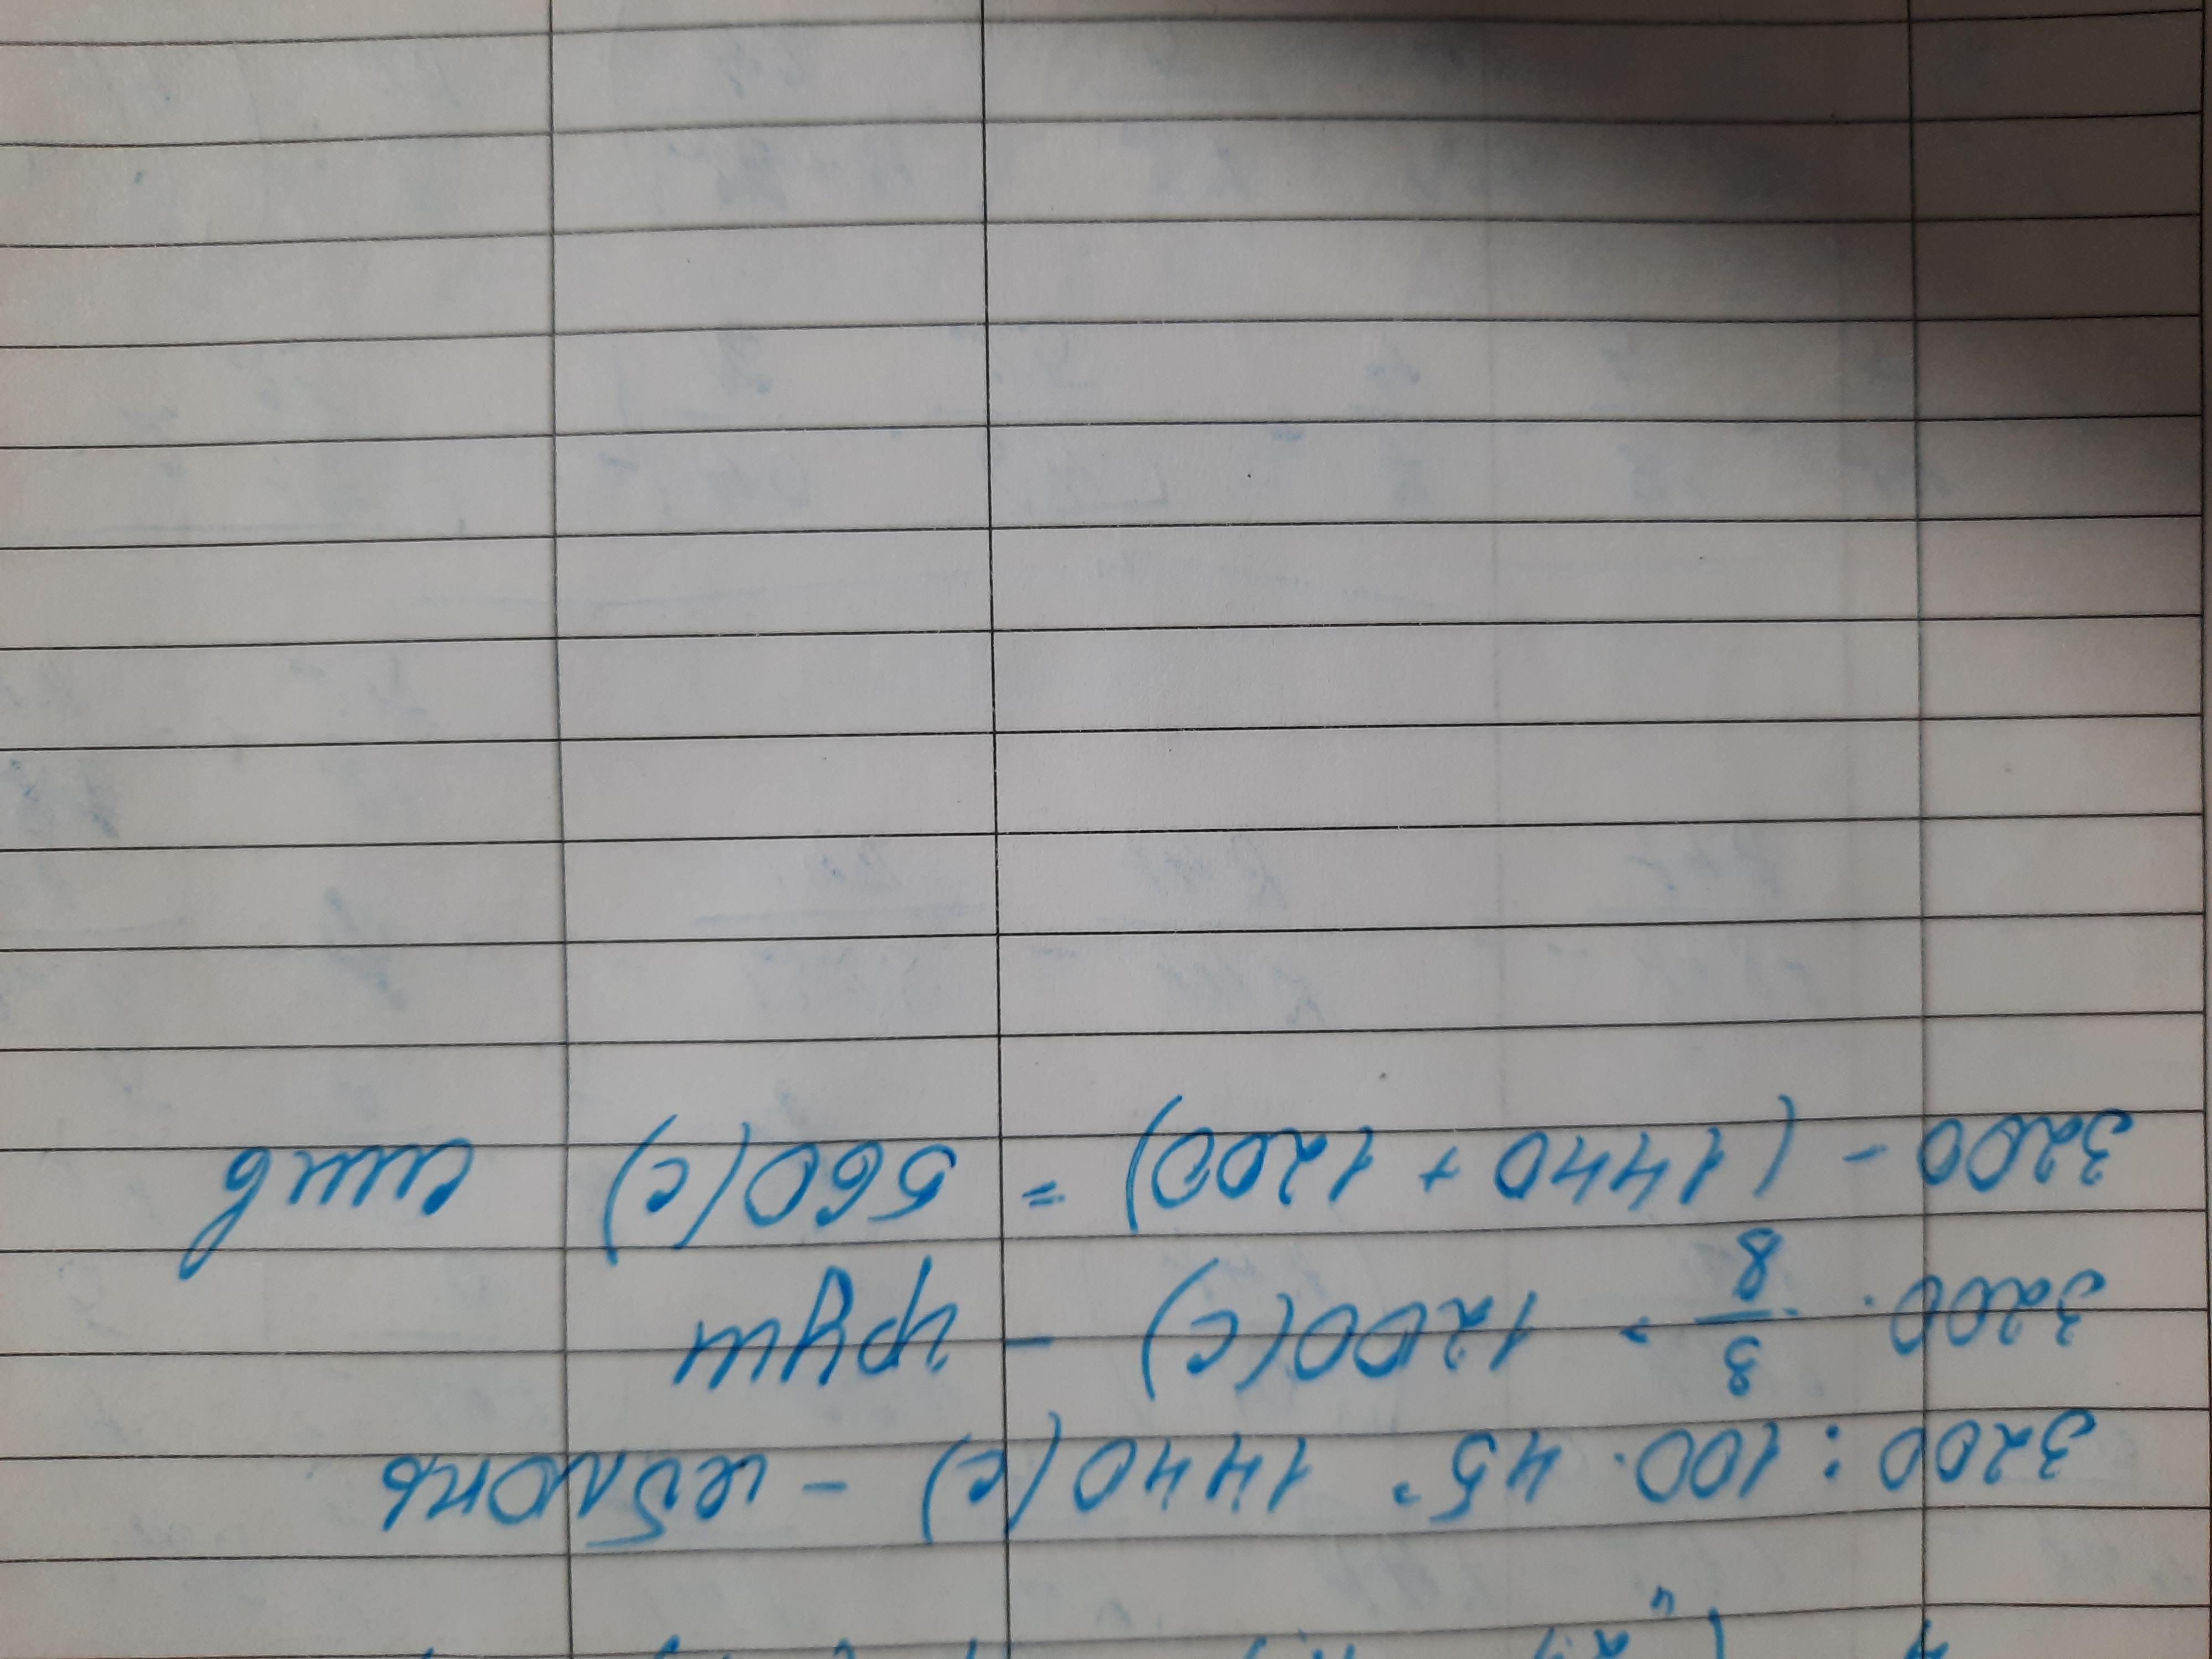 3200 : 100 · 45 = 1440 (с) - яблонь
3200 · 3/8 = 1200 (с) - груш
3200 - (1440 + 1200) = 560 (с) слив